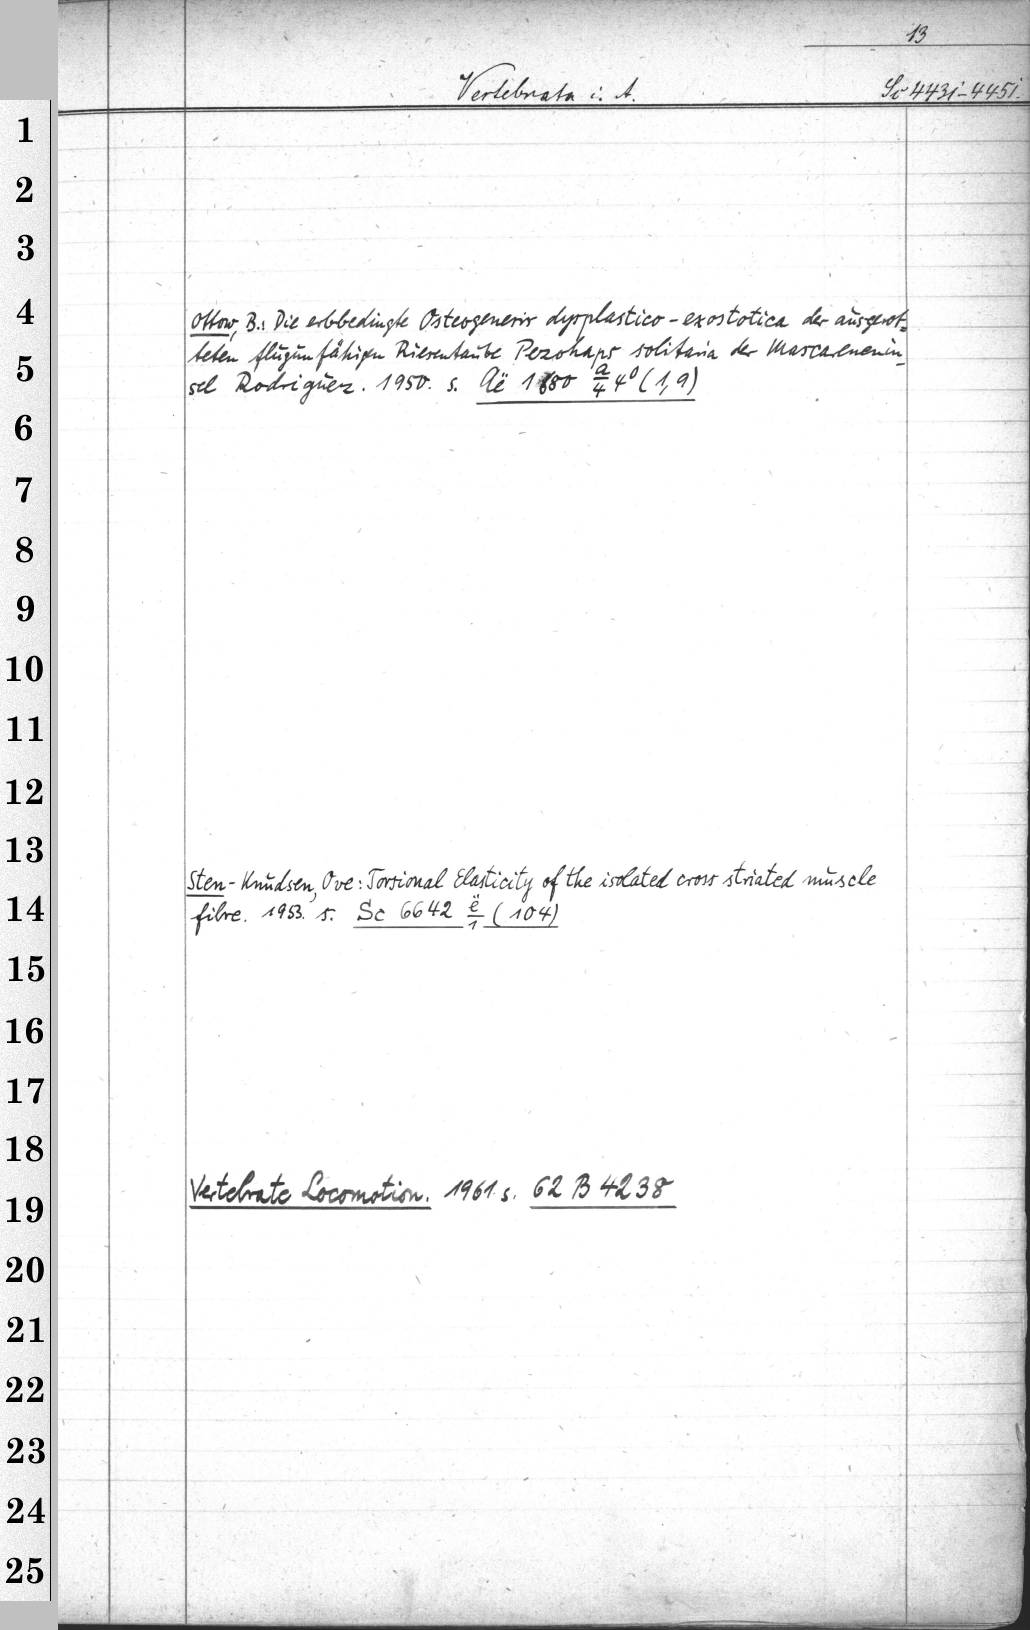 13
Vertebrata i. A.
Sv 443i-445i
1
2
3
4
Ottow, B.: Die erbbedingte Osteogenesis dysplastico-exostotica der ausgerot-
teten flugunfähigen Riesentaube Pezohaps solitaria der Mascarenenin-
5
sel Rodriguez. 1950. s. Aë 1680 a/4 4° (1,9)
6
7
8
9
10
11
12
13
Sten-Knudsen, Ove: Torsional Elasticity of the isolated cross striated muscle
14
fibre. 1953. s. Sc 6642 ë/1 (104)
15
16
17
18
Vertebrate Locomotion. 1961. s. 62 B 4238
19
20
21
22
23
24
25